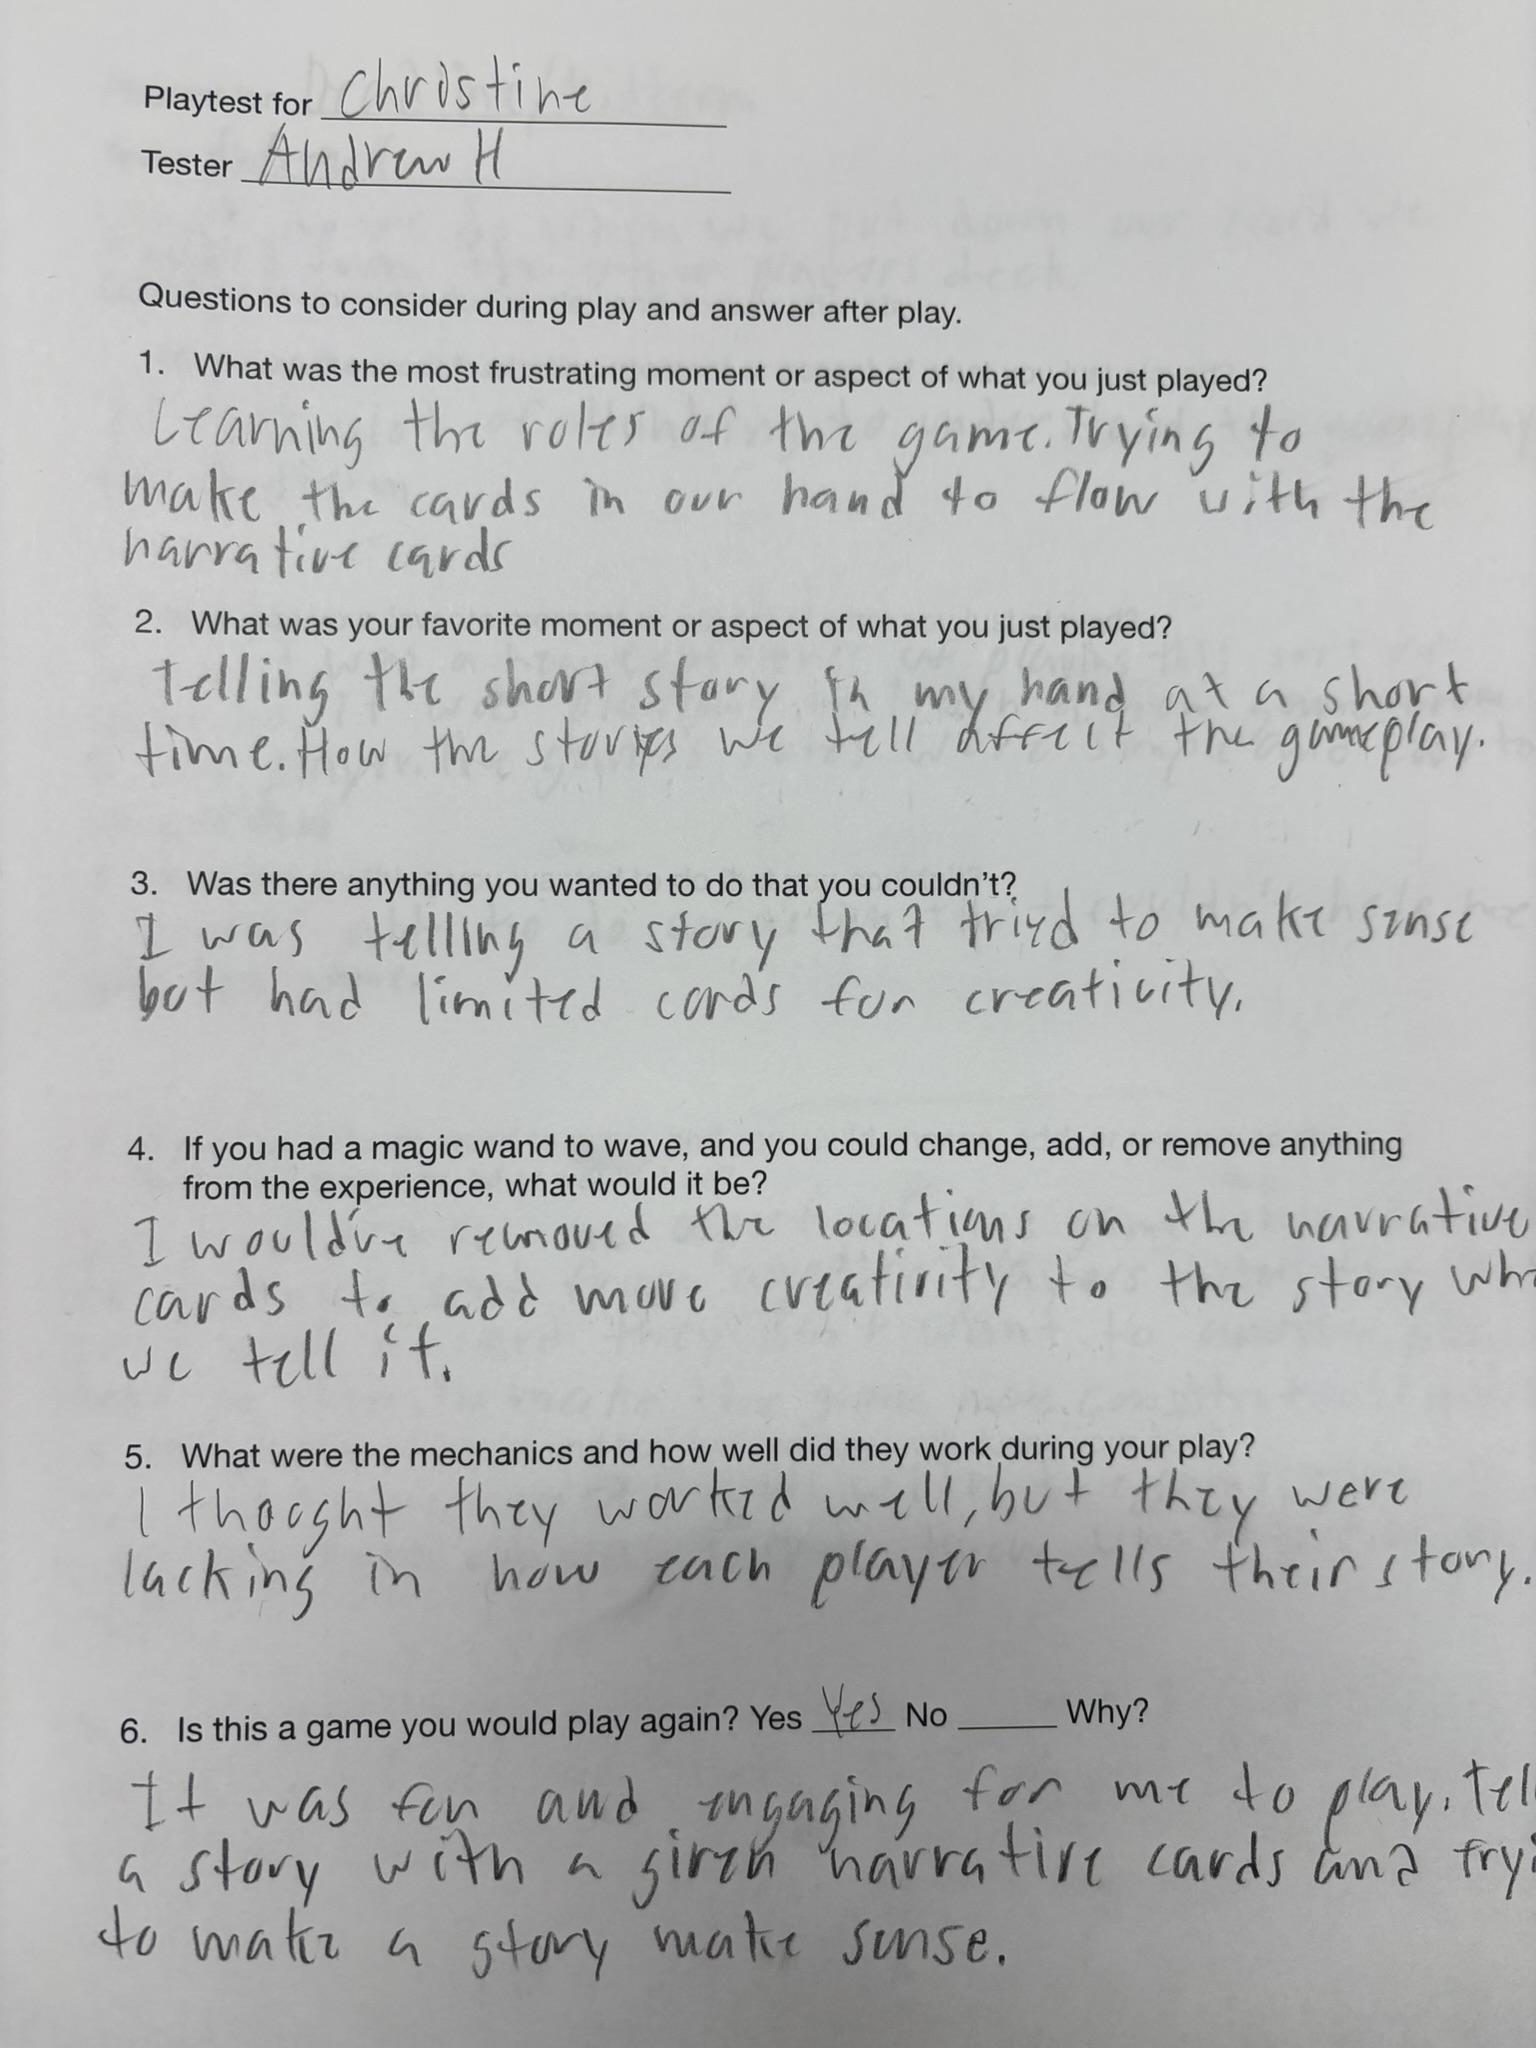 Playtest for Christine
Tester Andrew H
Questions to consider during play and answer after play.
1. What was the most frustrating moment or aspect of what you just played?
Learning the rules of the game. Trying to
make the cards in our hand to flow with the
narrative cards
2. What was your favorite moment or aspect of what you just played?
Telling the short story in my hand at a short
time. How the stories we tell affect the gameplay.
3. Was there anything you wanted to do that you couldn't?
I was telling a story that tried to make sense
but had limited cards for creativity.
4. If you had a magic wand to wave, and you could change, add, or remove anything
from the experience, what would it be?
I would've removed the locations on the narrative
cards to add more creativity to the story
we tell it.
5. What were the mechanics and how well did they work during your play?
I thought they worked well, but they were
lacking in how each player tells their story.
6. Is this a game you would play again? Yes Yes No _____ Why?
It was fun and engaging for me to play. Tel
a story with a given narrative cards and tryi
to make a story make sense.